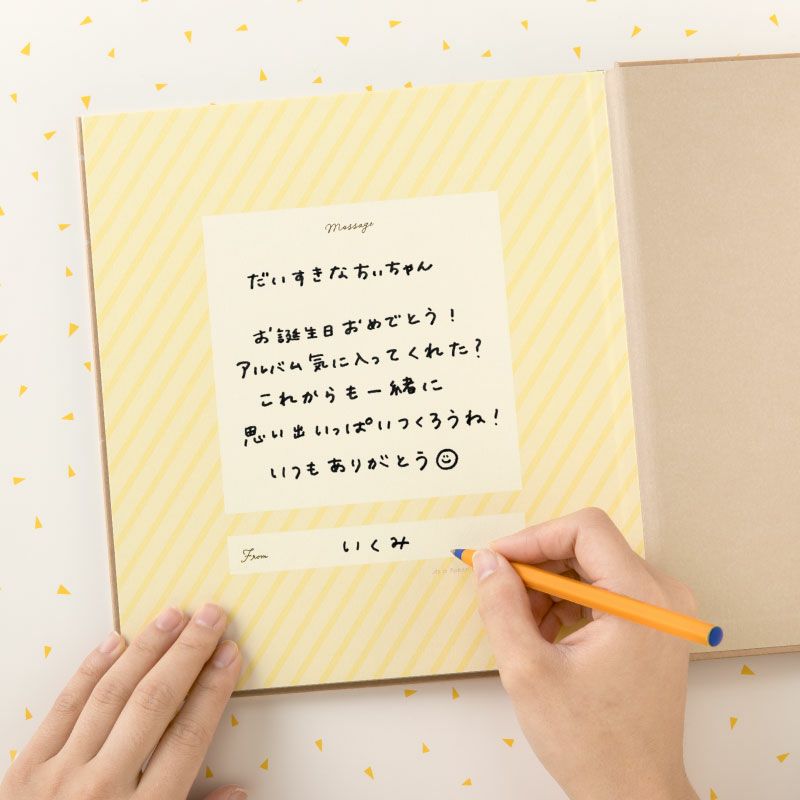 Message
だいすきなちぃちゃん
お誕生日おめでとう!
アルバム気に入ってくれた?
これからも一緒に
思い出いっぱいつくろうね!
いつもありがとう
From いくみ